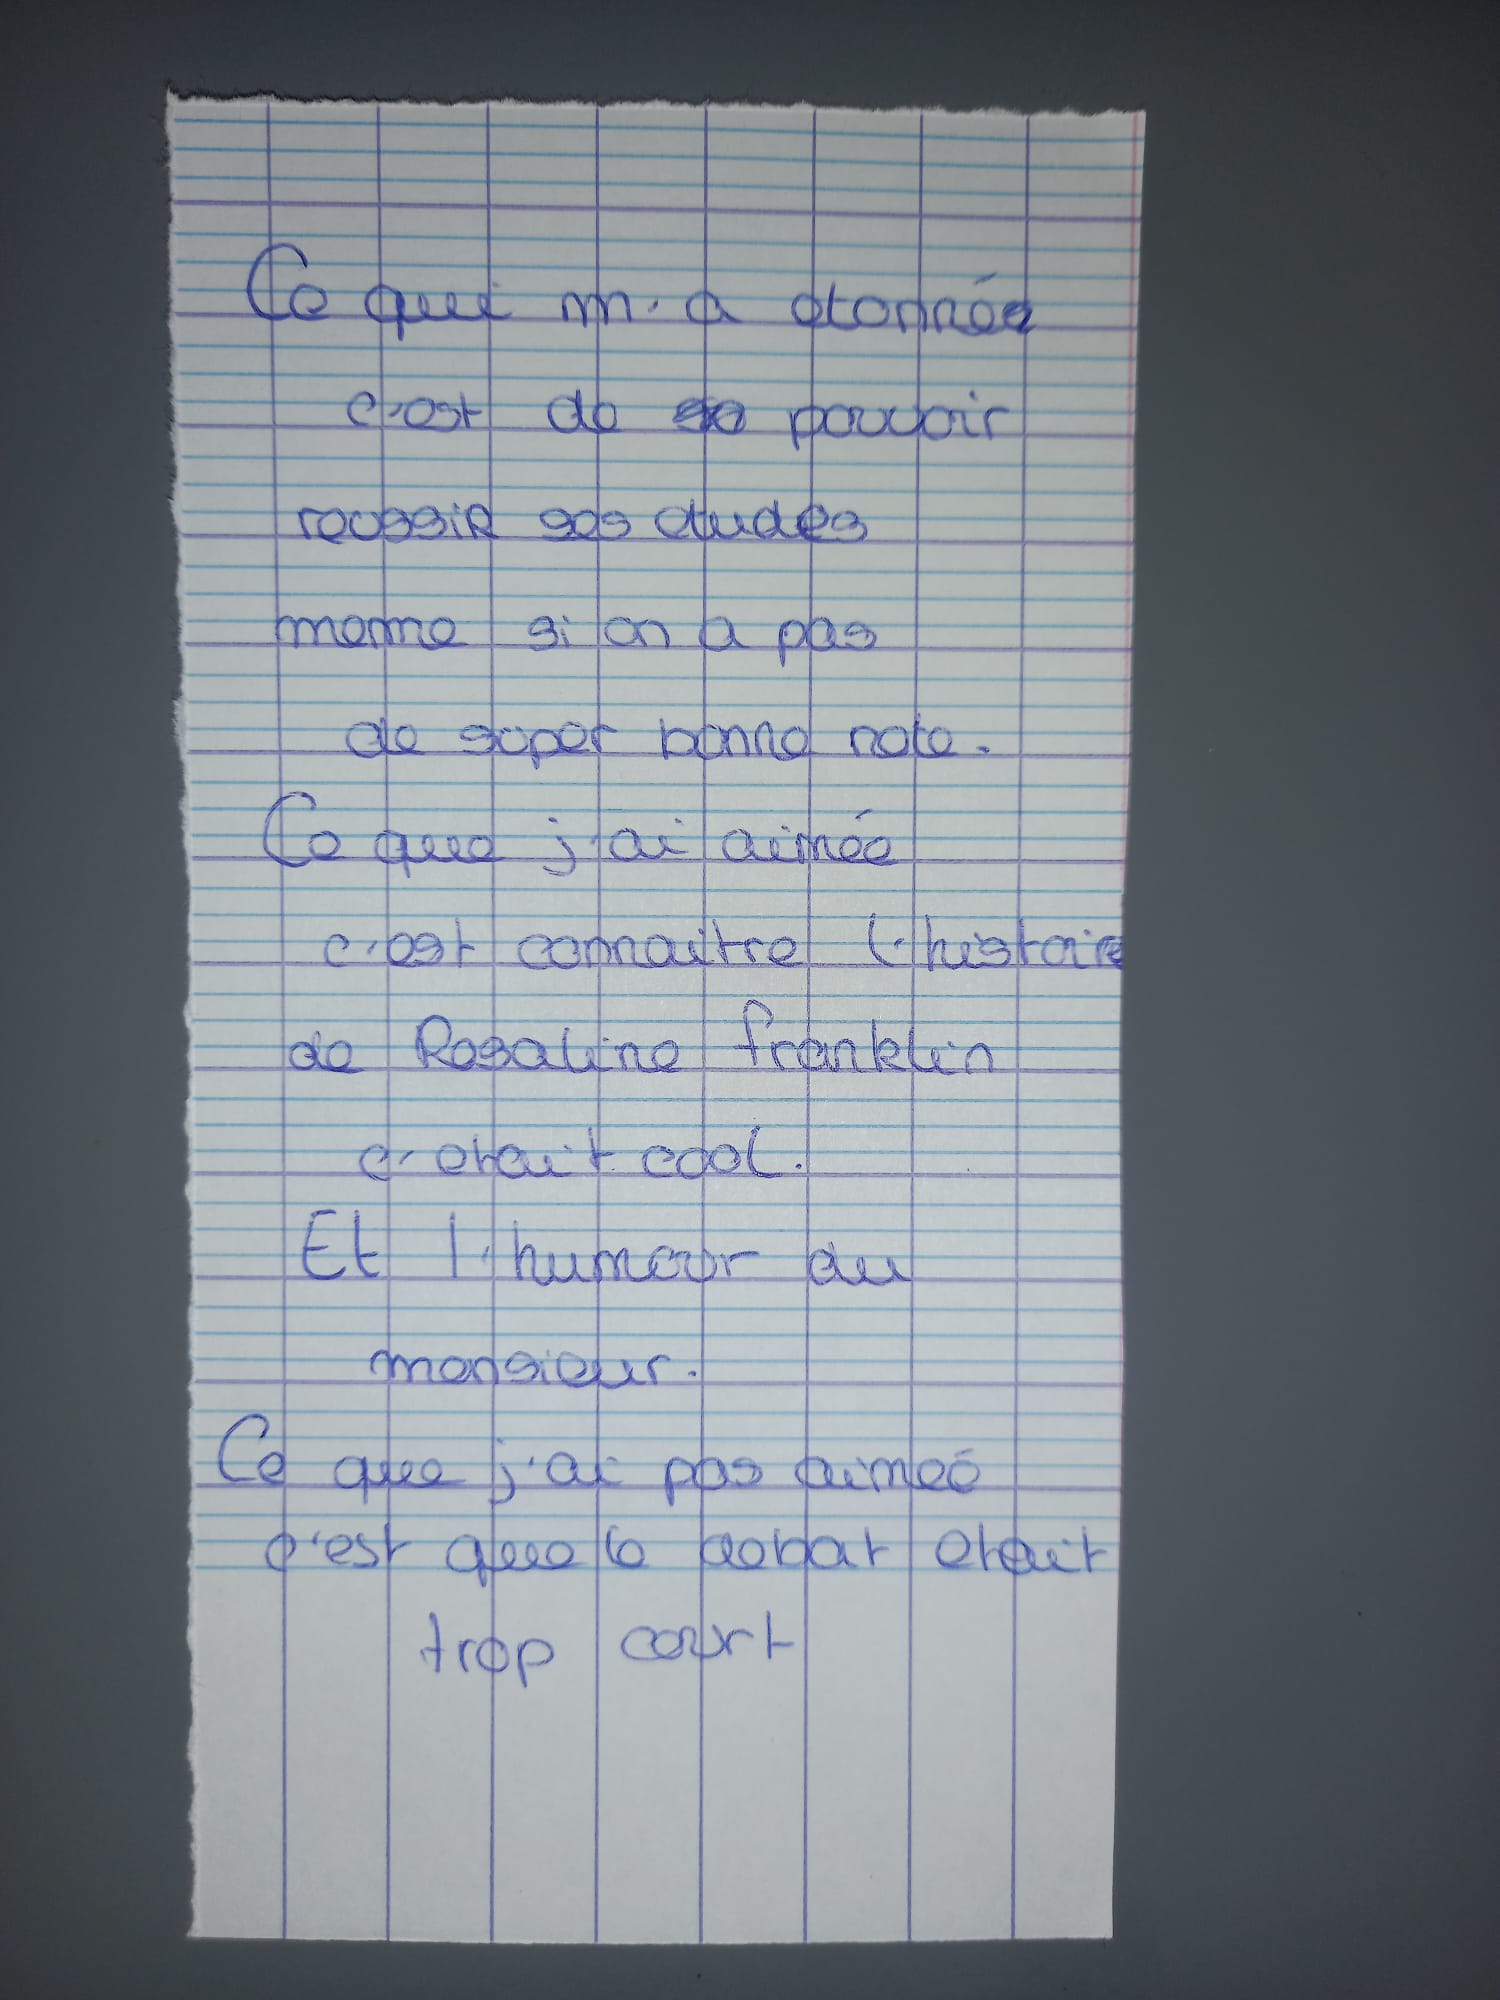 Ce qui m'a etonnée
c'est de pouvoir
reussir ses etudes
meme si on a pas
de super bonne note.
Ce que j'ai aimée
c'est connaitre l'histoire
de Rosaline franklin
c'etait cool.
Et l'humour du
monsieur.
Ce que j'ai pas aimeé
c'est que le debat etait
trop court